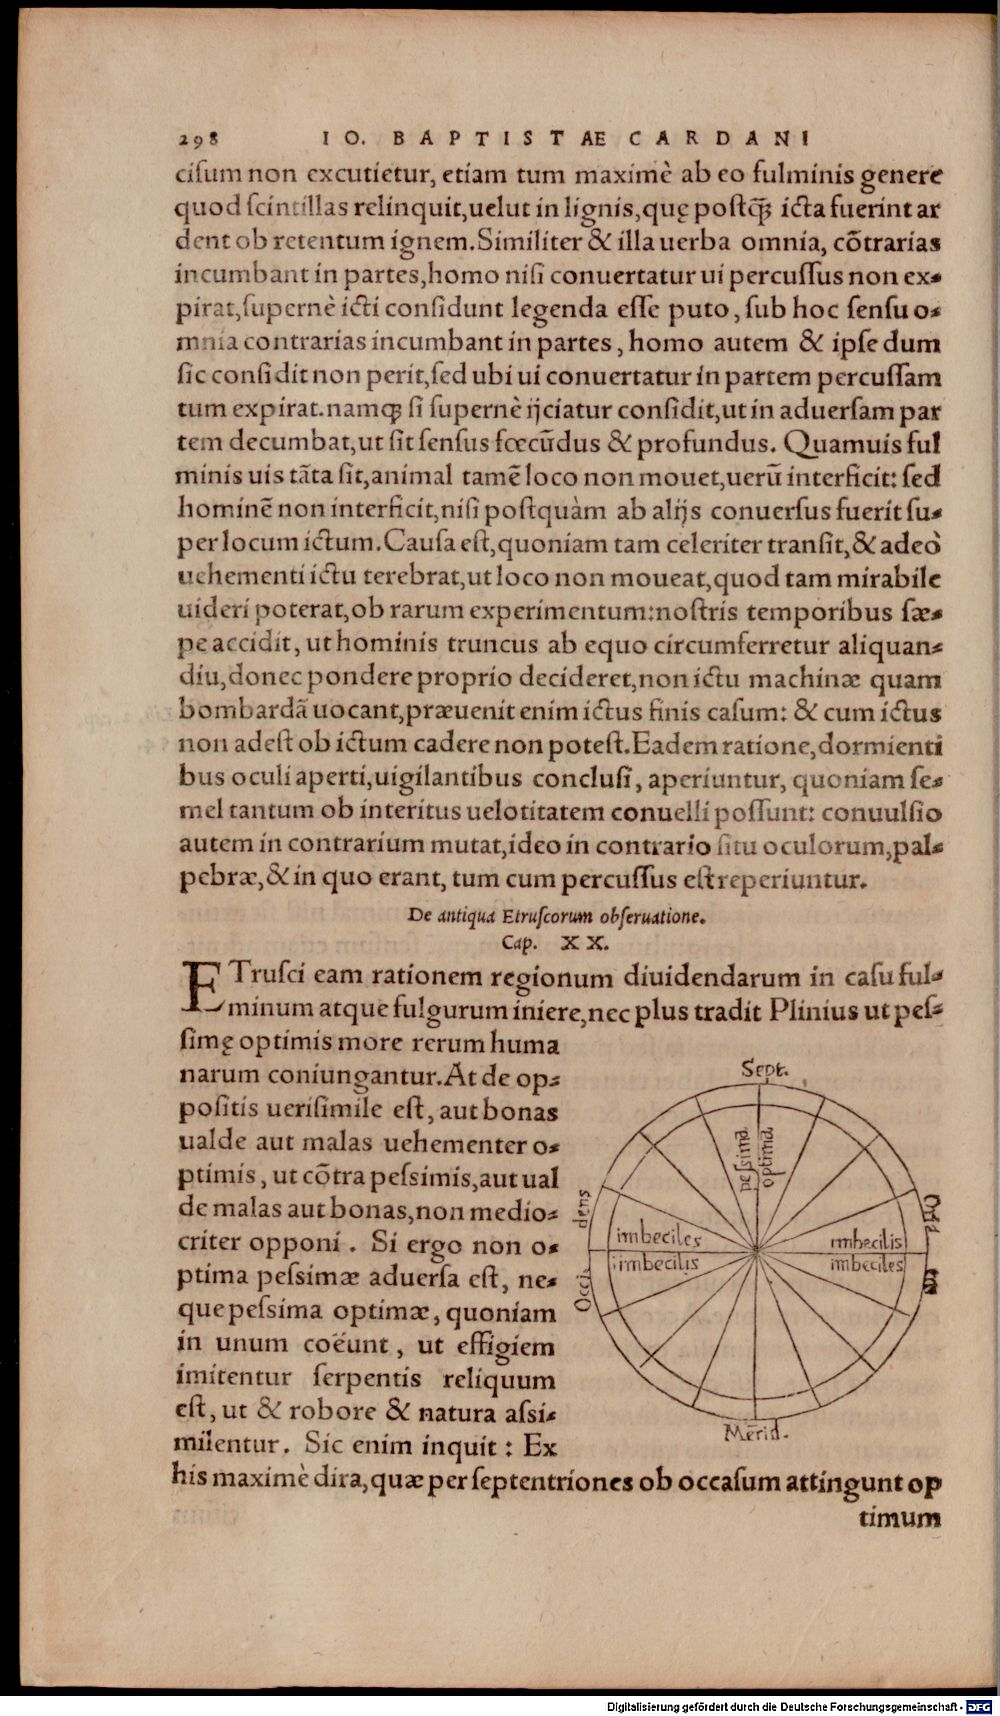 298 IO. BAPTISTAE CARDANI
cisum non excutietur, etiam tum maximè ab eo fulminis genere
quod scintillas relinquit,uelut in lignis,quę postq̃ꝫ icta fuerint ar
dent ob retentum ignem.Similiter & illa uerba omnia, cõtrarias
incumbant in partes,homo nisi conuertatur ui percussus non ex⸗
pirat,supernè icti considunt legenda esse puto, sub hoc sensu o⸗
mnia contrarias incumbant in partes, homo autem & ipse dum
sic considit non perit,sed ubi ui conuertatur in partem percussam
tum expirat.namqꝫ si supernè ijciatur considit,ut in aduersam par
tem decumbat,ut sit sensus fœcũdus & profundus. Quamuis ful
minis uis tãta sit,animal tamẽ loco non mouet,uerũ interficit: sed
hominẽ non interficit,nisi postquàm ab alijs conuersus fuerit su⸗
per locum ictum.Causa est,quoniam tam celeriter transit,& adeò
uehementi ictu terebrat,ut loco non moueat,quod tam mirabile
uideri poterat,ob rarum experimentum:nostris temporibus sæ⸗
pe accidit, ut hominis truncus ab equo circumferretur aliquan⸗
diu,donec pondere proprio decideret,non ictu machinæ quam
bombardã uocant,præuenit enim ictus finis casum: & cum ictus
non adest ob ictum cadere non potest.Eadem ratione,dormienti
bus oculi aperti,uigilantibus conclusi, aperiuntur, quoniam se⸗
mel tantum ob interitus uelotitatem conuelli possunt: conuulsio
autem in contrarium mutat,ideo in contrario situ oculorum,pal⸗
pebræ,& in quo erant, tum cum percussus est reperiuntur.
De antiqua Etruscorum obseruatione.
Cap. XX.
ETrusci eam rationem regionum diuidendarum in casu ful⸗
minum atque fulgurum iniere,nec plus tradit Plinius ut pes⸗
simę optimis more rerum huma
narum coniungantur.At de op⸗
positis uerisimile est, aut bonas
ualde aut malas uehementer o⸗
ptimis, ut cõtra pessimis,aut ual
de malas aut bonas,non medio⸗
criter opponi. Si ergo non o⸗
ptima pessimæ aduersa est, ne⸗
que pessima optimæ, quoniam
in unum coëunt, ut effigiem
imitentur serpentis reliquum
est, ut & robore & natura assi⸗
milentur. Sic enim inquit: Ex
his maximè dira,quæ per septentriones ob occasum attingunt op
timum
Sept.
pessima
optima
Occi dens
imbeciles
imbecilis
imbecilis
imbeciles
Merid.